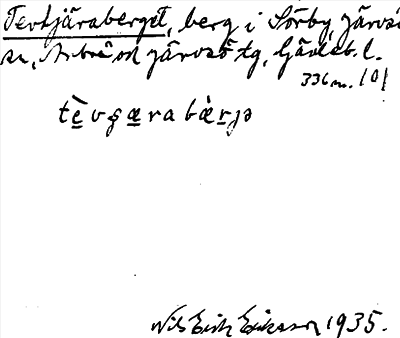 Tevtjäraberget, berg i Sörby, Järvsö
sn, Arbrå och Järvsö tg, Gävleb. l.
336 m. 101
tèvʂæraba�loc̀ærjə
Nils Erik Eriksson 1935.